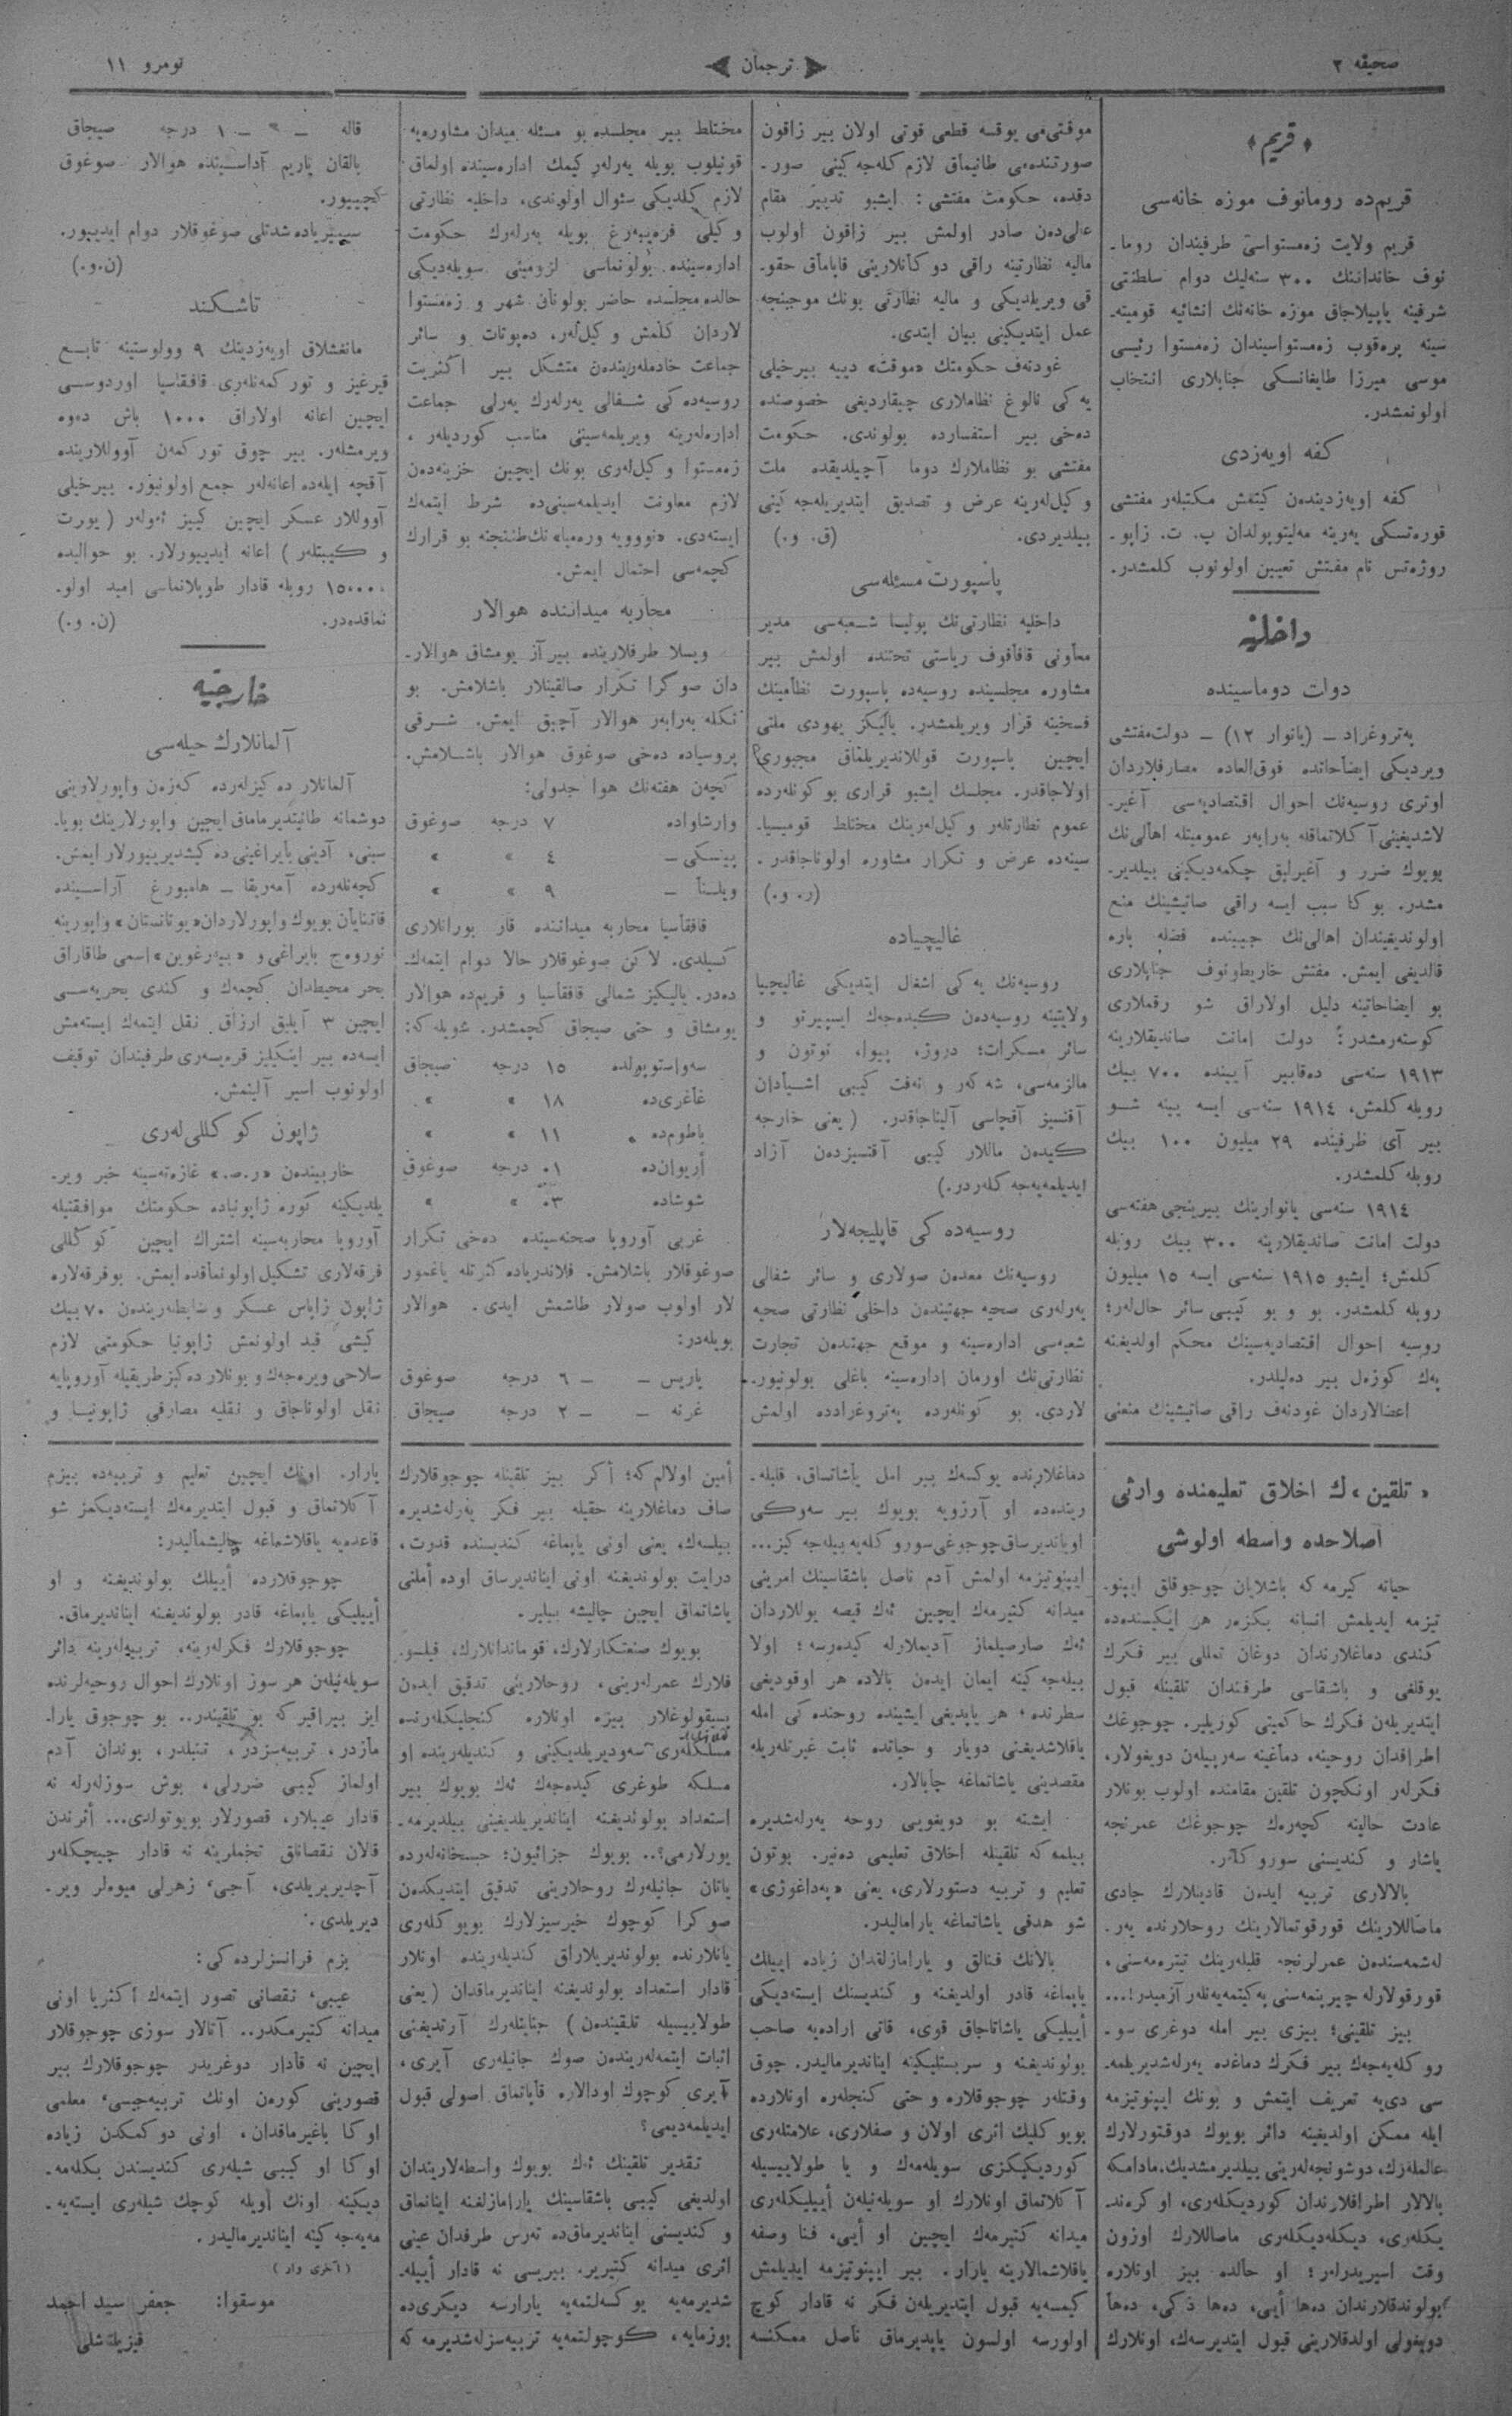 صحیفه ٢
ترجمان
نومرو ١١
«قریم»
قریم‌ده رومانوف موزه خانه‌سی
قریم ولایت زه‌مستواسی طرفیندان روما-
نوف خانداننك ٣٠٠ سنه‌لیك دوام سلطنتی
شرفینه یاپیلاجاق موزه خانه‌نك انشائیه قومیته-
سینه پره‌قوب زه‌مستواسیندان زه‌مستوا رئیسی
موسی میرزا طایغانسکی جنابلاری انتخاب
اولونمشدر.
کفه اویه‌زدی
کفه اویه‌زدیندن کیتمش مکتبلر مفتشی
قوره‌تسکی یه‌رینه مه‌لیتوپولدان پ. ت. زاپو-
روژه‌تس نام مفتش تعیین اولونوب کلمشدر.
داخلیه
دولت دوماسینده
په‌تروغراد – (یانوار ١٢) – دولت مفتشی
ویردیکی ایضاحاتده فوق‌العاده مصارفلاردان
اوتری روسیه‌نك احوال اقتصادیه‌سی آغیر-
لاشدیغینی آکلاتماقله به‌رابه‌ر عمومیتله اهالی‌نك
بویوك ضرر و آغیرلیق چکمه‌دیکینی بیلدیر-
مشدر. بوکا سبب ایسه راقی صاتیشینك منع
اولوندیغیندان اهالی‌نك جیبنده فضله پاره
قالدیغی ایمش. مفتش خاریطونوف جنابلاری
بو ایضاحاتینه دلیل اولاراق شو رقملاری
کوسته‌رمشدر: دولت امانت صاندیقلارینه
١٩١٣ سنه‌سی ده‌قابیر آیینده ٧٠٠ بیك
روبله کلمش، ١٩١٤ سنه‌سی ایسه یینه شو
بیر آی ظرفینده ٢٩ میلیون ١٠٠ بیك
روبله کلمشدر.
١٩١٤ سنه‌سی یانوارینك بیرینجی هفته‌سی
دولت امانت صاندیقلارینه ٣٠٠ بیك روبله
کلمش؛ ایشبو ١٩١٥ سنه‌سی ایسه ١٥ میلیون
روبله کلمشدر. بو و بو کیبی سائر حال‌لر؛
روسیه احوال اقتصادیه‌سینك محکم اولدیغینه
پك کوزه‌ل بیر ده‌لیلدر.
اعضالاردان غودنه‌ف راقی صاتیشینك منعنی
موقتی‌می یوقسه قطعی قوتی اولان بیر زاقون
صورتنده‌می طانیماق لازم کله‌جه‌کینی صور-
دقده، حکومت مفتشی: ایشبو تدبیر مقام
عالی‌دن صادر اولمش بیر زاقون اولوب
مالیه نظارتینه راقی دوکانلارینی قاپامق حقو-
قی ویریلدیکی و مالیه نظارتی بونك موجبنجه
عمل ایتدیکینی بیان ایتدی.
غودنه‌ف حکومتك «موقت» دییه بیرخیلی
یه‌کی نالوغ نظاملاری چیقاردیغی خصوصنده
ده‌خی بیر استفسارده بولوندی. حکومت
مفتشی بو نظاملارك دوما آچیلدیقده ملت
وکیل‌لرینه عرض و تصدیق ایتدیریله‌جه‌کینی
بیلدیردی. (ق. و.)
پاسپورت مسئله‌سی
داخلیه نظارتی‌نك پولیسا شعبه‌سی مدیر
معاونی قافافوف ریاستی تحتنده اولمش بیر
مشاوره مجلسینده روسیه‌ده پاسپورت نظامینك
فسخینه قرار ویریلمشدر. یالیکز یهودی ملتی
ایچین پاسپورت قوللاندیریلماق مجبوری
اولاجاقدر. مجلسك ایشبو قراری بوکونلرده
عموم نظارتلر وکیل‌لرینك مختلط قومیسیا-
سینه‌ده عرض و تکرار مشاوره اولوناجاقدر.
(ر. و.)
غالیچیاده
روسیه‌نك یه‌کی اشغال ایتدیکی غالیچیا
ولایتینه روسیه‌دن کیده‌جك ایسپیرتو و
سائر مسکرات؛ دروژ، پیوا، توتون و
مالزمه‌سی، شه‌کر و نه‌فت کیبی اشیادان
آقتسیز آقچاسی آلیناجاقدر. (یعنی خارجه
کیدن ماللار کیبی آقتسیزدن آزاد
ایدیلمه‌یه‌جه‌کلردر.)
روسیه‌ده‌کی قاپلیجه‌لار
روسیه‌نك معدن صولاری و سائر شفالی
یه‌رلری صحیه جهتیندن داخلی نظارتی صحیه
شعبه‌سی اداره‌سینه و موقع جهتندن تجارت
نظارتی‌نك اورمان اداره‌سینه باغلی بولونیور-
لاردی. بو کونلرده په‌تروغرادده اولمش
مختلط بیر مجلسده بو مسئله میدان مشاوره‌یه
قونیلوب بویله یه‌رلر کیمك اداره‌سینده اولماق
لازم کلدیکی سئوال اولوندی، داخلیه نظارتی
وکیلی فره‌یبه‌رغ بویله یه‌رلرك حکومت
اداره‌سینده بولونماسی لزومینی سویله‌دیکی
حالده مجلسده حاضر بولونان شهر و زه‌مستوا
لاردان کلمش وکیل‌لر، ده‌پوتات و سائر
جماعت خادملریندن متشکل بیر اکثریت
روسیه‌ده‌کی شفالی یه‌رلرك یه‌رلی جماعت
اداره‌لرینه ویریلمه‌سینی مناسب کوردیلر،
زه‌مستوا وکیل‌لری بونك ایچین خزینه‌دن
لازم معاونت ایدیلمه‌سینی‌ده شرط ایتمك
ایسته‌دی. «نوویه وره‌میا» نك ظننجه بو قرارك
کچمه‌سی احتمال ایمش.
محاربه میداننده هوالار
ویسلا طرفلارینده بیرآز یومشاق هوالار-
دان صوکرا تکرار صالقینلار باشلامش. بو
نکله به‌رابه‌ر هوالار آچیق ایمش. شرقی
پروسیاده ده‌خی صوغوق هوالار باشلامش.
کچن هفته‌نك هوا جدولی:
وارشاواده ٧ درجه صوغوق
پینسکی – ٤ » »
ویلنا – ٩ » »
قافقاسیا محاربه میداننده قار بورانلاری
کسیلدی. لاکن صوغوقلار حالا دوام ایتمك-
ده‌در. یالیکیز شمالی قافقاسیا و قریم‌ده هوالار
یومشاق و حتی صیجاق کچمشدر. شویله که:
سه‌واستوپولده ١٥ درجه صیجاق
غاغری‌ده ١٨ » »
باطوم‌ده ١١ » »
اریوان‌ده ٠١ درجه صوغوق
شوشاده ٠٣ » »
غربی آوروپا صحنه‌سینده ده‌خی تکرار
صوغوقلار باشلامش. فلاندریاده کثرتله یاغمور
لار اولوب صولار طاشمش ایدی. هوالار
بویله‌در:
پاریس – – ٦ درجه صوغوق
غرنه – – ٢ درجه صیجاق
قاله – – ١ درجه صیجاق
بالقان یاریم آداسینده هوالار صوغوق
کچییور.
سیبیریاده شدتلی صوغوقلار دوام ایدییور.
(ن.و.)
تاشکند
مانغشلاق اویه‌زدینك ٩ وولوستینه تابع
قیرغیز و تورکمه‌نلری قافقاسیا اوردوسی
ایچین اعانه اولاراق ١٠٠٠ باش ده‌وه
ویرمشلر. بیر چوق تورکمه‌ن آووللارینده
آقچه ایله‌ده اعانه‌لر جمع اولونیور. بیرخیلی
آووللار عسکر ایچین کییز ئه‌ولر (یورت
و کیبیتلر) اعانه ایدییورلار. بو حوالیده
١٥٠٠٠٠ روبله قادار طوپلانماسی امید اولو-
نماقده‌در. (ن. و.)
خارجیه
آلمانلارك حیله‌سی
آلمانلار ده‌کیزلرده که‌زه‌ن واپورلارینی
دوشمانه طانیتدیرماماق ایچین واپورلارینك بویا-
سینی، آدینی بایراغینی ده‌کیشدیرییورلار ایمش.
کچنلرده آمه‌ریقا – هامبورغ آراسینده
قاتنایان بویوك واپورلاردان «یوتانستان» واپورینه
نوروه‌ج بایراغی و «بیه‌رغوین» اسمی طاقاراق
بحر محیطدان کچمك و کندی بحریه‌سی
ایچین ٣ آیلیق ارزاق نقل ایتمك ایسته‌مش
ایسه‌ده بیر اینکلیز قره‌یسه‌ری طرفیندان توقیف
اولونوب اسیر آلینمش.
ژاپون کوکللی‌لری
خاربیندن «ر.ص.» غازه‌ته‌سینه خبر ویر-
یلدیکینه کوره ژاپونیاده حکومتك موافقتیله
آوروپا محاربه‌سینه اشتراك ایچین کوکللی
فرقه‌لاری تشکیل اولونماقده ایمش. بو فرقه‌لاره
ژاپون زاپاس عسکر و ضابطلریندن ٧٠ بیك
کیشی قید اولونمش ژاپونیا حکومتی لازم
سلاحی ویره‌جك و بونلار ده‌کیز طریقیله آوروپایه
نقل اولوناجاق و نقلیه مصارفی ژاپونیا و
«تلقین» ك اخلاق تعلیمنده وارثی
اصلاحده واسطه اولوشی
حیاته کیرمه‌که باشلایان چوجوقلق ایپنو-
تیزمه ایدیلمش انسانه بکزه‌ر هر ایکیسنده‌ده
کندی دماغلارندان دوغان تمللی بیر فکرك
یوقلغی و باشقاسی طرفندان تلقینله قبول
ایتدیریلن فکرك حاکمیتی کوریلیر. چوجوغك
اطرافدان روحینه، دماغینه سه‌رپیلن دویغولار،
فکرلر اونکچون تلقین مقامنده اولوب بونلار
عادت حالینه کچه‌رك چوجوغك عمرنجه
یاشار و کندیسنی سوروکلر.
بالالاری تربیه ایدن قادینلارك جادی
ماصاللارینك قورقوتمالارینك روحلارنده یه‌ر-
لشمه‌سندن عمرلرنجه قلبلرینك تیتره‌مه‌سنی،
قورقولارله چیرپنمه‌سنی په‌کیتمه‌یه‌نلر آزمیدر!...
بیز تلقینی؛ بیزی بیر امله دوغری سو-
روکله‌یه‌جك بیر فکرك دماغده یه‌رلشدیریلمه-
سی دییه تعریف ایتمش و بونك ایپنوتیزمه
ایله ممکن اولدیغینه دائر بویوك دوقتورلارك
عالملرك، دوشونجه‌لرینی بیلدیرمشدیك. مادامکه
بالالار اطرافلارندان کوردیکلری، اوکره‌ند-
یکلری، دیکله‌دیکلری ماصاللارك اوزون
وقت اسیریدرلر؛ او حالده بیز اونلاره
بولوندقلارندان ده‌ها أیی، ده‌ها ذکی، ده‌ها
دویغولی اولدقلارینی قبول ایتدیرسه‌ك، اونلارك
دماغلارنده یوکسك بیر امل یاشاتساق، قلبله-
رینده‌ده او آرزویه بویوك بیر سه‌وکی
اویاندیرساق چوجوغی سوروکله‌یه‌بیله‌جه‌کیز...
ایپنوتیزمه اولمش آدم ناصل باشقاسینك امرینی
میدانه کتیرمك ایچین ئه‌ك قیصه یوللاردان
ئه‌ك صارصیلماز آدیملارله کیده‌رسه؛ اولا
بیله‌جه‌کینه ایمان ایدن بالاده هر اوقودیغی
سطرنده، هر یاپدیغی ایشینده روحنده‌کی امله
یاقلاشدیغنی دویار و حیاتده ثابت غیرتلریله
مقصدینی یاشاتماغه چابالار.
ایشته بو دویغویی روحه یه‌رلشدیره
بیلمه‌که تلقینله اخلاق تعلیمی ده‌نیر. بوتون
تعلیم و تربیه دستورلاری، یعنی «په‌داغوژی»
شو هدفی یاشاتماغه یاراماليدر.
بالانك فنالق و یارامازلقدان زیاده أییلك
یاپماغه قادر اولدیغینه و کندیسنك ایسته‌دیکی
أییلیکی یاشاتاجاق قوی، قاتی اراده‌یه صاحب
بولوندیغینه و سربستلیکینه ایناندیرمالیدر. چوق
وقتلر چوجوقلاره و حتی کنجلره اونلارده
بویوکلیك اثری اولان وصفلاری، علامتلری
کوردیکیکزی سویله‌مك و یا طولاییسیله
آکلاتماق اونلارك او سویله‌نیلن أییلیکلری
میدانه کتیرمك ایچین او أیی، فنا وصفه
یاقلاشمالارینه یارار. بیر ایپنوتیزمه ایدیلمش
کیمسه‌یه قبول ایتدیریلن فکر نه قادار کوچ
اولورسه اولسون یاپدیرماق ناصل ممکنسه
أمین اولالم که؛ أکر بیز تلقینله چوجوقلارك
صاف دماغلارینه حقیله بیر فکر یه‌رلشدیره
بیلسه‌ك، یعنی اونی یاپماغه کندیسنده قدرت،
درایت بولوندیغینه اونی ایناندیرساق اوده أملنی
یاشاتماق ایچین چالیشه بیلیر.
بویوك صنعتکارلارك، قوماندانلارك، فیلسو-
فلارك عمرلرینی، روحلارینی تدقیق ایدن
پسیقولوغلار بیزه اونلاره کنجلیکلرنده
مسلکلری سه‌ودیریلدیکینی و کندیلرینده او
مسلکه طوغری کیده‌جك ئه‌ك بویوك بیر
استعداد بولوندیغینه ایناندیریلدیغینی بیلدیرمه-
یورلارمی؟.. بویوك جزائیون؛ حبسخانه‌لرده
یاتان جانیلرك روحلارینی تدقیق ایتدیکدن
صوکرا کوچوك خیرسیزلارك بویوکلری
یانلارنده بولوندیریلاراق کندیلرینده اونلار
قادار استعداد بولوندیغینه ایناندیرماقدان (یعنی
طولاییسیله تلقیندن) جنایتلرك آرتدیغنی
اثبات ایتمه‌لریندن صوك جانیلری آیری،
آیری کوچوك اودالاره قاپاتماق اصولی قبول
ایدیلمه‌دیمی؟
تقدیر تلقینك ئه‌ك بویوك واسطه‌لاریندان
اولدیغی کیبی باشقاسینك یارامازلغنه اینانماق
و کندیسنی ایناندیرماق‌ده ته‌رس طرفدان عینی
اثری میدانه کتیریر. بیریسی نه قادار أییله-
شدیرمه‌یه یوکسه‌لتمه‌یه یارارسه دیکری‌ده
بوزمایه، کوچولتمه‌یه تربیه‌سزله‌شدیرمه‌که
یارار. اونك ایچین تعلیم و تربیه‌ده بیزم
آکلاتماق و قبول ایتدیرمك ایسته‌دیکمز شو
قاعده‌یه یاقلاشماغه چالیشمالیدر:
چوجوقلارده أییلك بولوندیغینه و او
أییلیکی یاپماغه قادر بولوندیغینه ایناندیرماق.
چوجوقلارك فکرلرینه، تربیه‌لرینه دائر
سویله‌نیلن هر سوز اونلارك احوال روحیه‌لرنده
ایز بیراقیر که بو تلقیندر.. بو چوجوق یارا-
مازدر، تربیه‌سزدر، تنبلدر، بوندان آدم
اولماز کیبی ضررلی، بوش سوزلرله نه
قادار عیبلار، قصورلار بویوتولدی... أثرندن
قالان نقصانلق تخملرینه نه قادار چیچکلر
آچدیریریلدی، آجی، زهرلی میوه‌لر ویر-
دیریلدی.
بزم فرانسزلرده‌کی:
عیبی، نقصانی تصور ایتمك أکثریا اونی
میدانه کتیرمکدر.. آتالار سوزی چوجوقلار
ایچین نه قادار دوغریدر چوجوقلارك بیر
قصورینی کورن اونك تربیه‌جیسی، معلمی
اوکا باغیرماقدان، اونی دوکمکدن زیاده
اوکا او کیبی شیلری کندیسندن بکله‌مه-
دیکینه اونك اویله کوچك شیلری ایسته‌یه-
مه‌یه‌جه‌کینه ایناندیرمالیدر.
(آخری وار)
موسقوا: جعفر سید احمد
قیزیلطاشلی